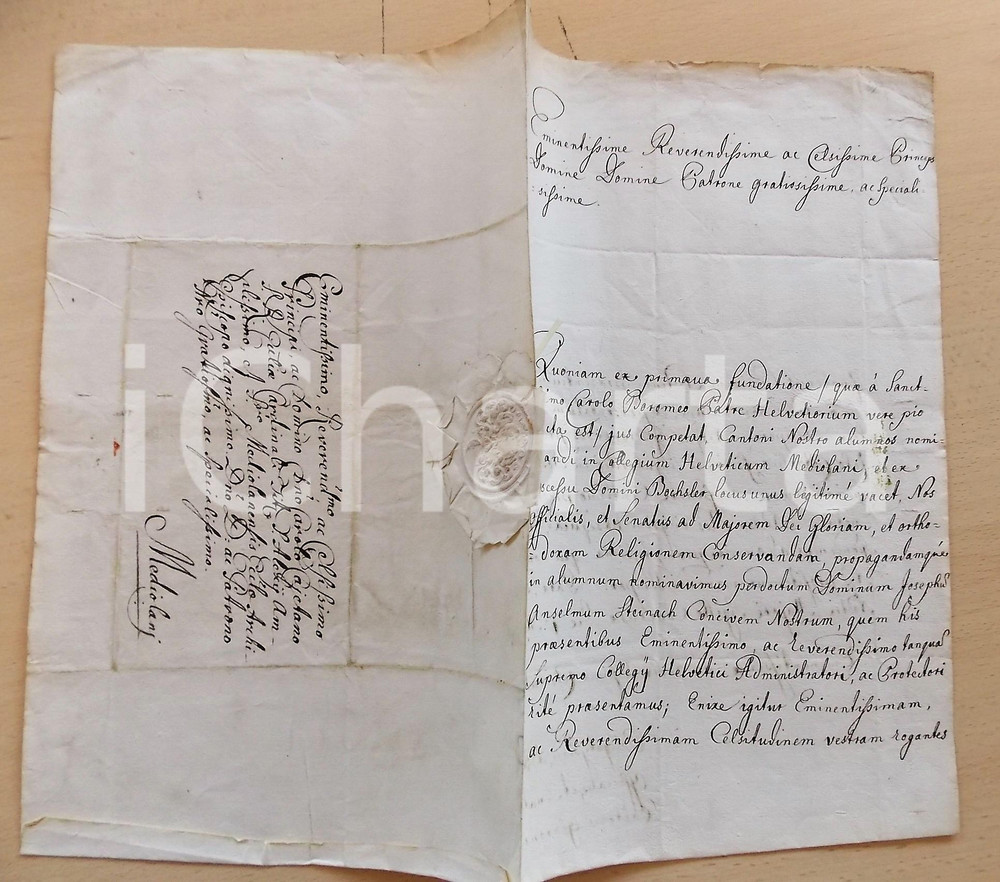 Eminentissime Reverendissime ac Celsissime Princeps
Domine Domine Patrone gratiosissime, ac Speciali
sissime.
Quoniam ex primæva fundatione / quæ á Sanct-
imo Carolo Boromeo Patre Helvetiorium vere pio
cta est / jus Competat Cantoni Nostro alumnos nomi
andi in ollegium Helveticum Mediolani, et ex
scessu Domini Bochsler locus unus legitimé vacet, Nos
Officialis, et Senatus ad Majorem Dei Gloriam, et ortho-
doxam Religionem Conservandam, propagandamqué
in alumnum nominavimus perdoctum Dominum Josephū
Anselmum Steinach Concivem Nostrum, quem his
præsentibus Eminentissimo, ac Reverendissimo tanquā
Supremo Collegÿ Helvetici Administratori, ac Protectori
rité præsentamus; Enixe igitur Eminentissimam,
ac Reverendissimam Celsitudinem vestram rogantes
Eminentissimo, Reverendissimo ac Celsissimo
Principi, ac Domino Dno Carolo Cajetano
S. R. Ecclæ Cardinali
Mediolanensis Ecclæ Archi-
Episcopo dignissimo, Dno D. ac Patrono
Gratiosissimo, ac Specialissimo.
Mediolanj
ichárta